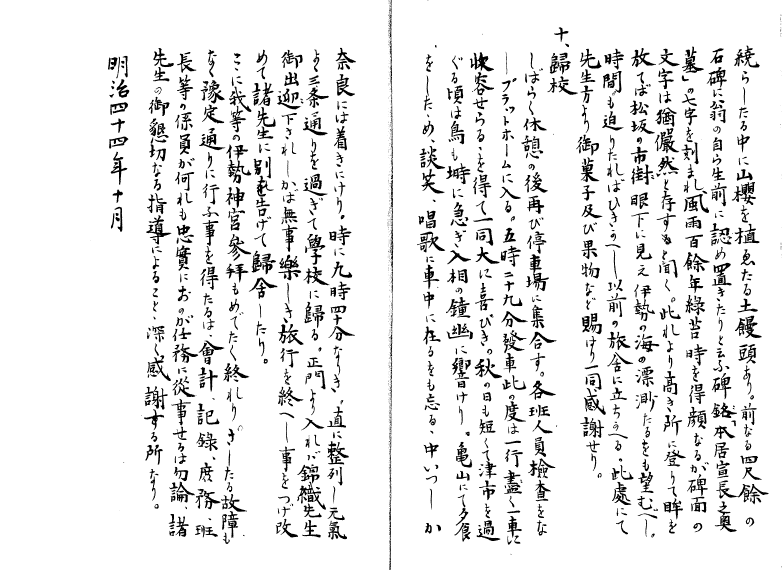 繞らしたる中に山櫻を植ゑたる土饅頭あり。前なる四尺餘の
石碑に翁の自ら生前に認め置きたりと云ふ碑銘「本居宣長之奥
墓」の七字を刻まれ、風雨百餘年綠苔時を得顔なるが碑面の
文字は猶儼然と存すもと聞く。此れより高き所に登りて眸を
放てば松坂の市街眼下に見え伊勢の海の漂渺たるをも望むべし。
時間も迫りたればひきかへし以前の旅舎に立ちかへる。此處にて
先生方より御菓子及び果物など賜けり一同感謝せり。
十、歸校
しばらく休憩の後再び停車場に集合す。各班人員檢査をな
しプラットホームに入る。五時二十九分發車此の度は一行盡く一車に
收容せらるゝを得て一同大に喜びき。秋の日も短くて津市を過
ぐる頃は鳥も塒に急ぎ入相の鐘幽に響けり。亀山にて夕食
をしたゝめ、談笑、唱歌に車中に在るをも忘る、中いつしか
奈良には着きにけり。時に九時四十分なりき。直に整列し元氣
よく三条通りを過ぎて學校に歸る。正門より入れば錦織先生
御出迎下されしかは無事樂しき旅行を終へし事をつげ改
めて諸先生に別を告げて歸舍したり。
こゝに我等の伊勢神宮參拜もめでたく終れり。さしたる故障も
なく豫定通りに行ふ事を得たるは、會計、記錄、庶務、班
長等の係員が何れも忠實におのが任務に從事せるは勿論、諸
先生の御懇切なる指導によること、深く感謝する所なり。
明治四十四年十月